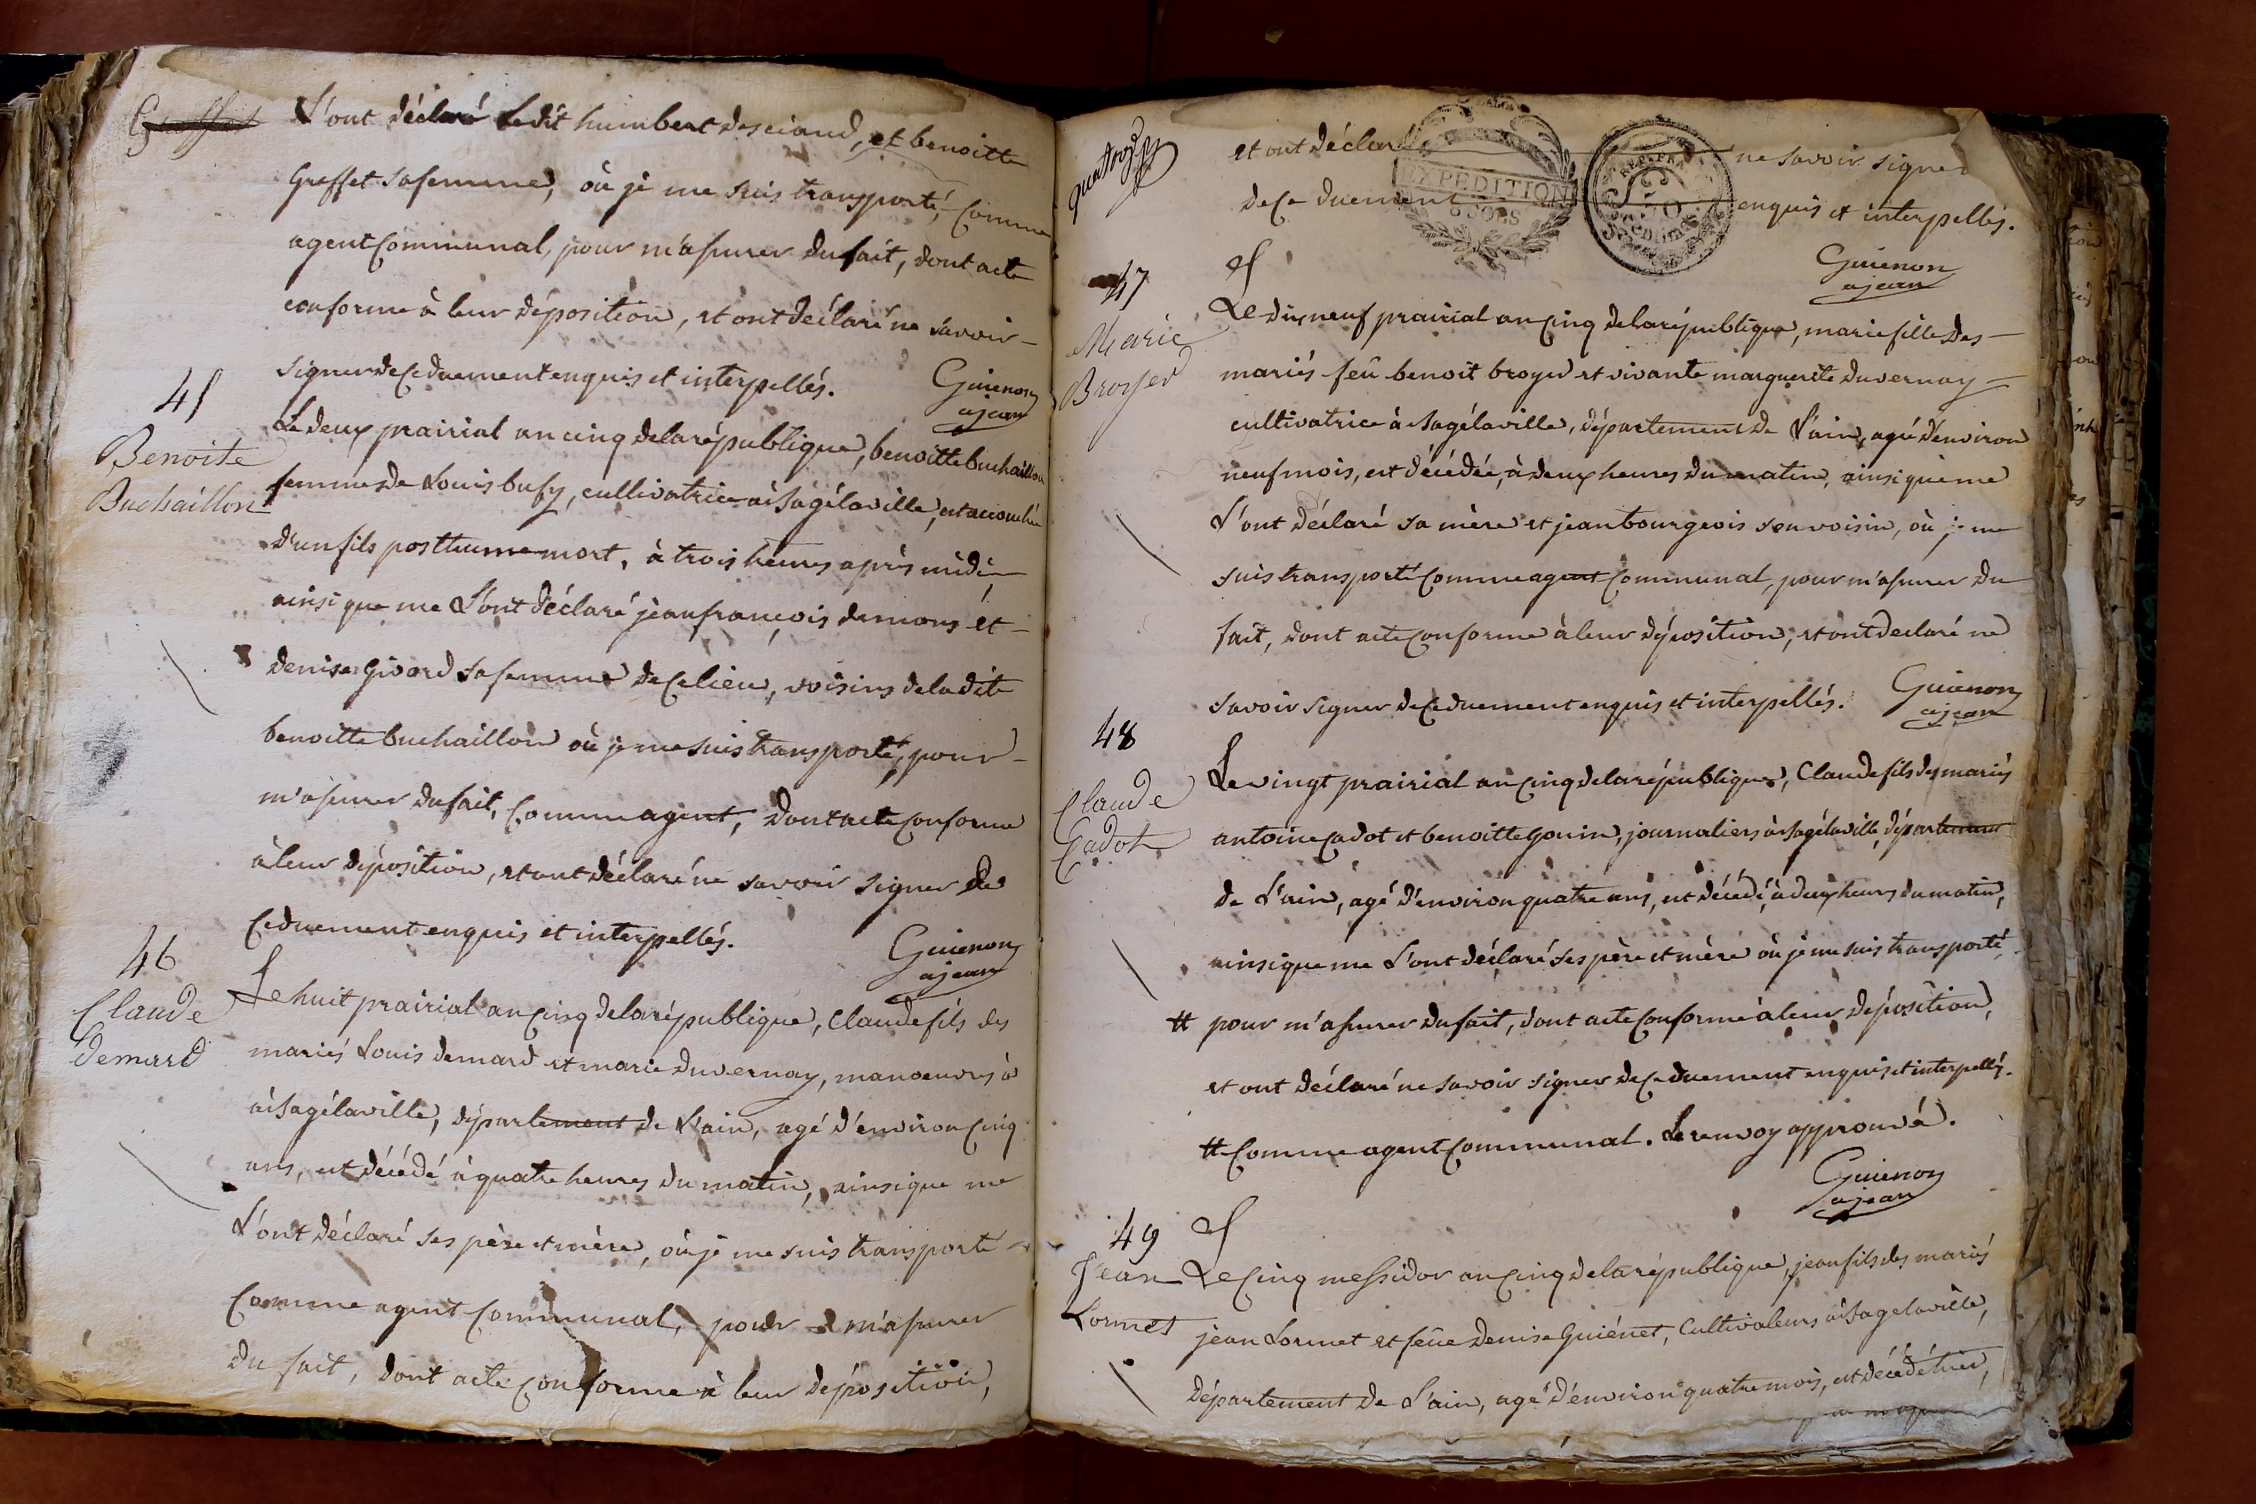 L'ont déclaré ledit humbert desciaud, et benoitte
Greffet sa femme, où je me suis transporté, comme
agent Communal, pour m'assurer du fait, dont acte
conforme à leur déposition, et ont déclaré ne savoir
signer de Ce duement enquis et interpellés.
Guienon
ajean
45
Benoite
Buchaillon
Le deux prairial an cinq de la république, benoitte buchaillon
femme de Louis bussy, cultivatrice à sagélaville, est accouchée
d'un fils posthume mort, à trois heures après midi
ainsi que me L'ont déclaré jean françois demons et
denise Givord sa femme de Ce lieu, voisins de la dite
benoitte buchaillon où je me suis transporté, pour
m'assurer du fait, Comme agent, dont acte Conforme
à leur déposition, et ont déclaré ne savoir signer de
Ce duement enquis et interpellés.
Guienon
ajean
46
Claude
demard
Le huit prairial an Cinq de la république, Claude fils des
mariés Louis demard et marie duvernay, manoeuvres à
à sagélaville, département de L'ain, agé d'environ Cinq
ans, est décédé à quatre heures du matin, ainsi que me
L'ont déclaré ses père et mère, où je me suis transporté
Comme agent Communal, pour m'assurer
du fait, dont acte Conforme à leur déposition,
et ont déclaré ne savoir signer
de Ce duement enquis et interpellés.
EXPÉDITION
6 SOLS
REP. FRA
Guienon
ajean
47
Marie
Broyer
Le dix neuf prairial an Cinq de la république, marie fille des
mariés feû benoit broyer et vivante marguerite duvernay
cultivatrice à sagélaville, département de L'ain, agé d'environ
neuf mois, est décédée, à deux heures du matin, ainsi que me
L'ont déclaré sa mère et jean bourgeois son voisin, où je me
suis transporté Comme agent Communal, pour m'assurer du
fait, dont acte Conforme à leur déposition, et ont déclaré ne
savoir signer de Ce duement enquis et interpellés.
Guienon
ajean
48
Claude
Cadot
Le vingt prairial an Cinq de la république, Claude fils des mariés
antoine Cadot et benoitte Gonin, journaliers à sagélaville, département
de L'ain, agé d'environ quatre ans, est décédé, à deux heures du matin,
ainsi que me L'ont déclaré ses père et mère où je me suis transporté,
# pour m'assurer du fait, dont acte Conforme à leur déposition,
et ont déclaré ne savoir signer de Ce duement enquis et interpellés.
# Comme agent Communal. Le renvoy approuvé.
Guienon
ajean
49
Jean
Lormet
Le Cinq messidor an Cinq de la république, jean fils des mariés
jean Lormet et feüe denise Guiénet, Cultivateurs à sagelaville,
département de L'ain, agé d'environ quatre mois, est décédé hier,